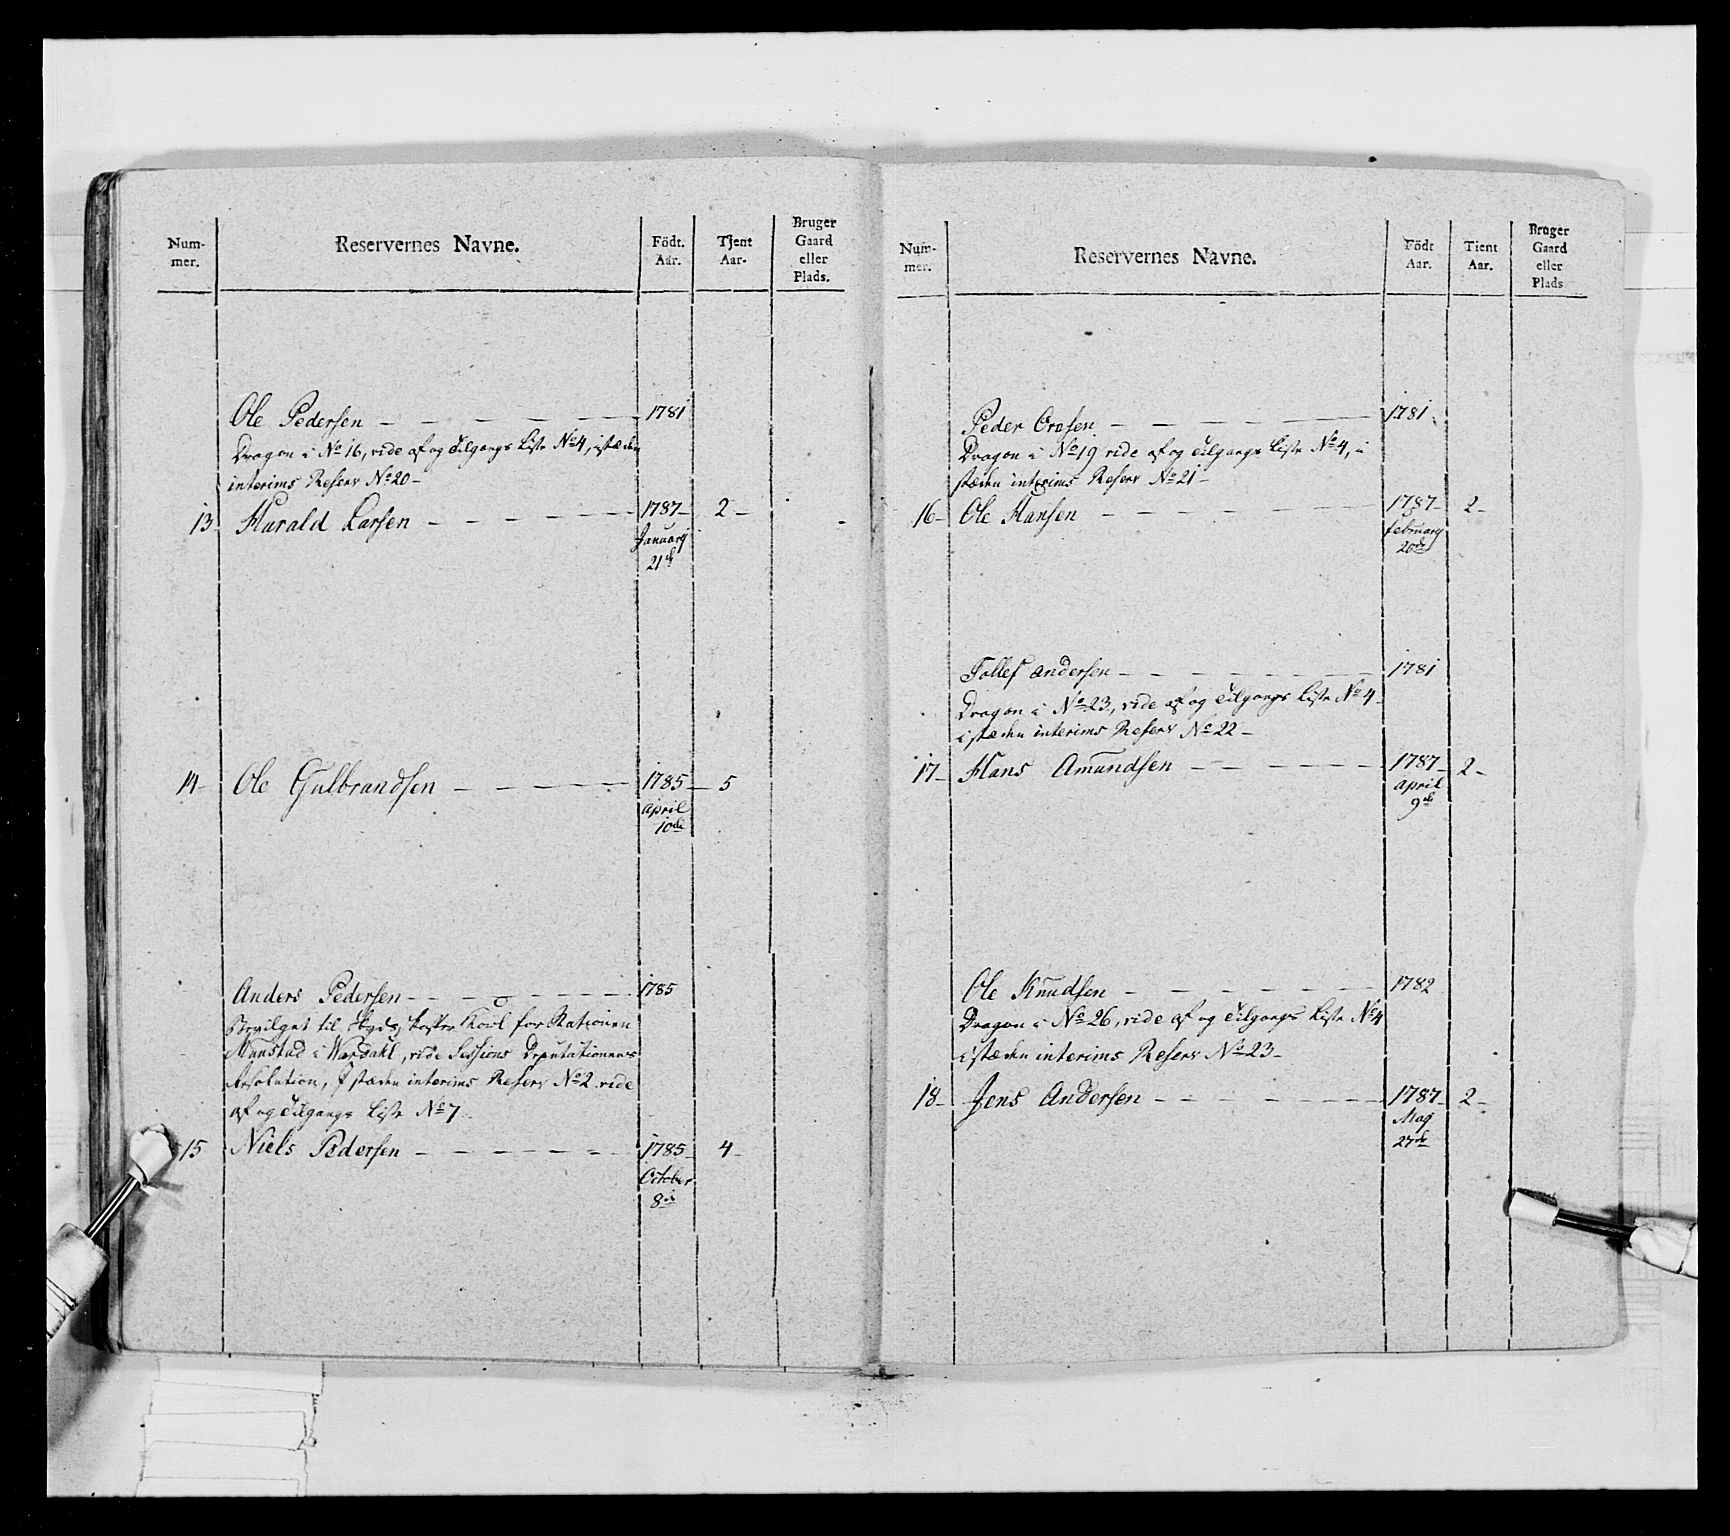 Num-
mer.
Reservernes Navne.
Födt.
Aar.
Tjent
Aar.
Bruger
Gaard
eller
Plads.
Ole Pedersen 1781
Dragon i No 16, vide af og Tilgangs Liste No 4, istæden
interims Reserv No 20
13 Harald Larsen 1787 2
January
21de
14 Ole Gulbrandsen 1785 5
April
10de
Anders Pedersen 1785
Bevilget til Skyds, Karl for Stationen
i Wardahl, vide Sessions Deputationens
Resolution, I stæden interims Reserv No 2 vide
af og Tilgangs Liste No 7
15 Niels Pedersen 1785 4
October
8de
Num-
mer.
Reservernes Navne.
Födt
Aar.
Tient
Aar.
Bruger
Gaard
eller
Plads
Peder Olesen 1781
Dragon i No 19 vide af og Tilgangs Liste No 4, i
stæden interims Reserv No 21
16 Ole Hansen 1787 2
February
20de
Tollef Andersen 1781
Dragon i No 23, vide af og Tilgangs Liste No 4
i stæden interims Reserv No 22
17 Hans Amundsen 1787 2
April
9de
Ole Knudsen 1782
Dragon i No 26, vide af og Tilgangs Liste No 4
i stæden interims Reserv No 23
18 Jens Andersen 1787 2
May
27de